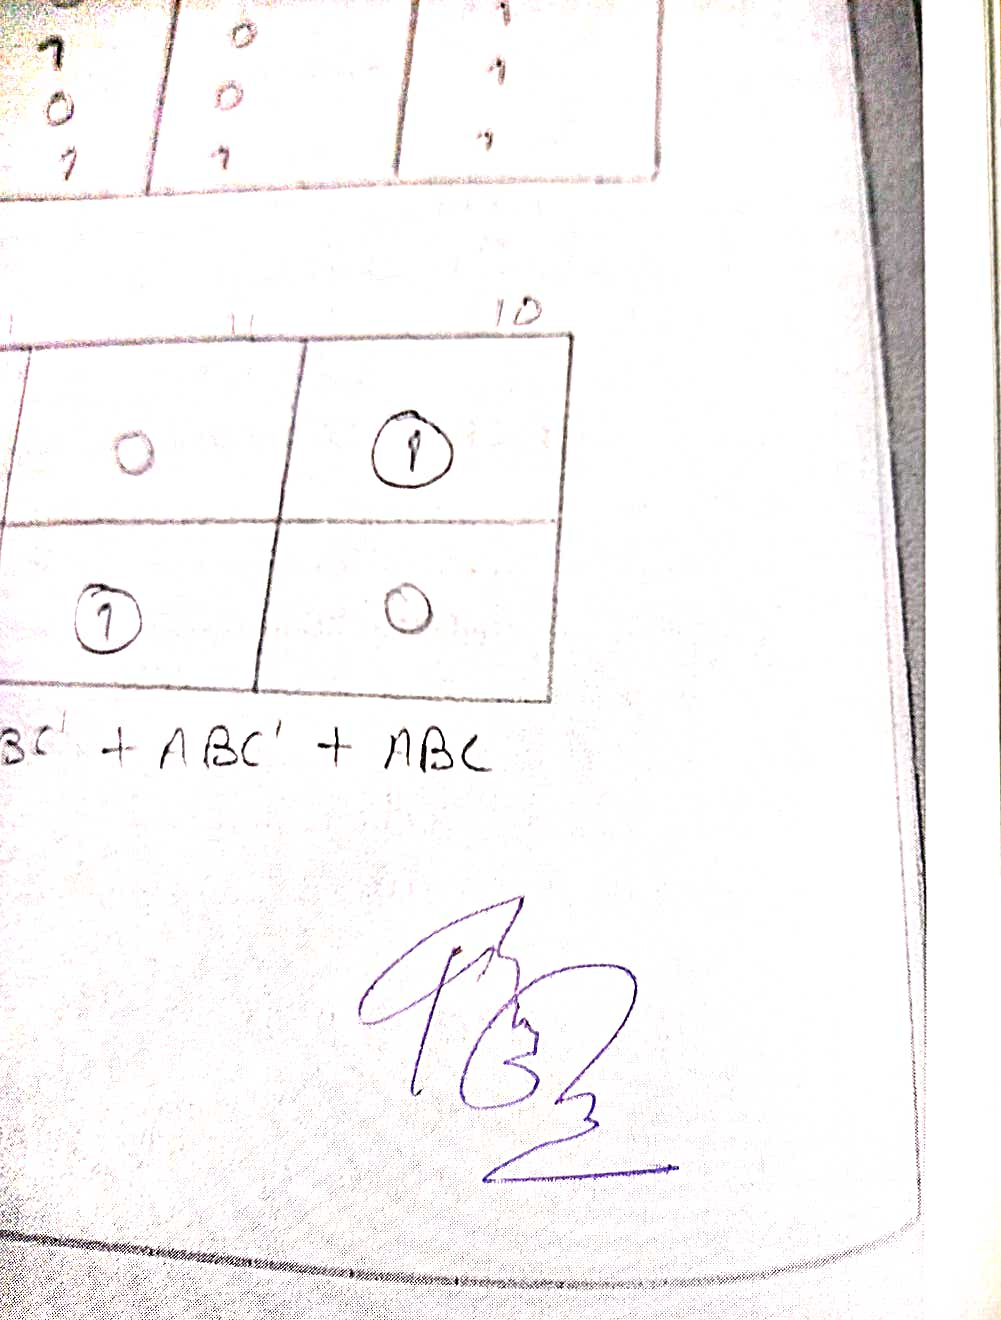 1
1 0 1
0 0 1
1 1 1
11 10
0 1
1 0
BC' + ABC' + ABC